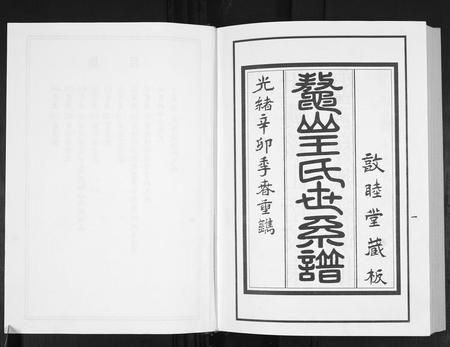 敦睦堂藏板
鼇山王氏世系譜
光緒辛卯季春重鐫